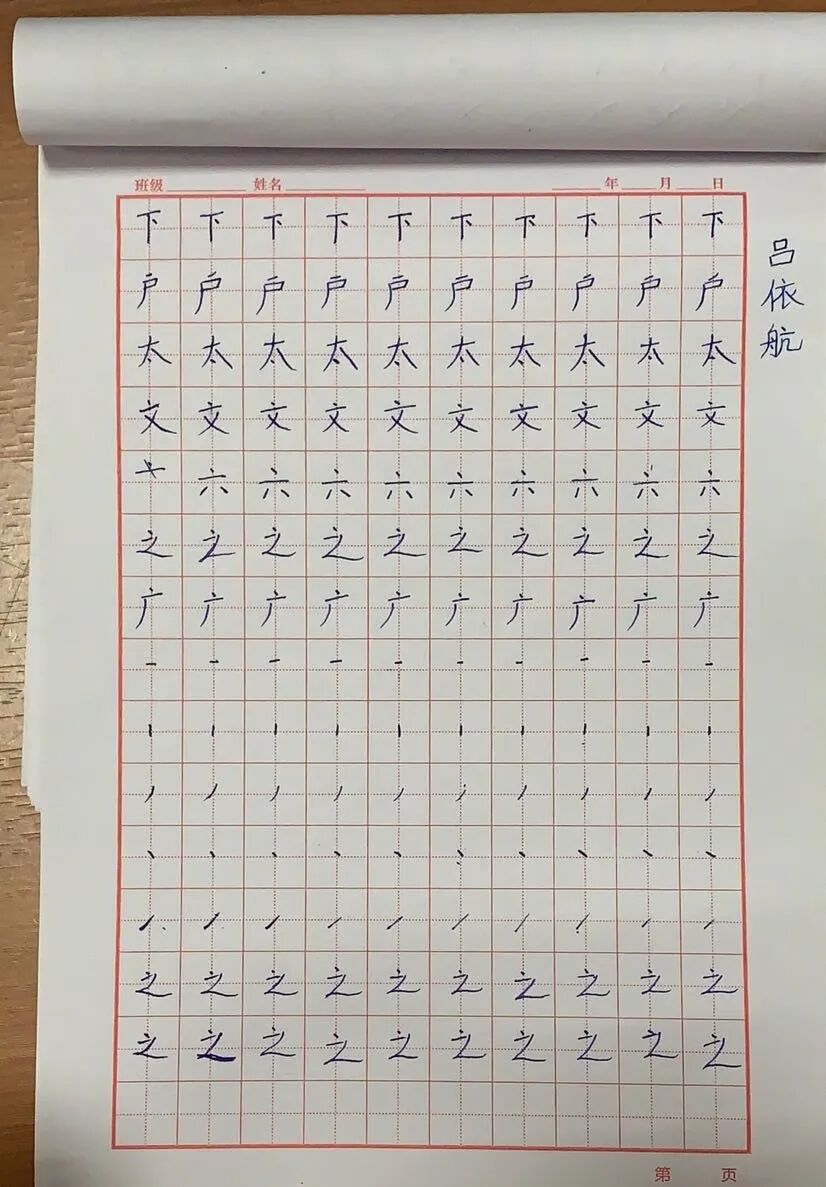 班级 姓名 年 月 日
下 下 下 下 下 下 下 下 下 下
户 户 户 户 户 户 户 户 户 户
太 太 太 太 太 太 太 太 太 太
文 文 文 文 文 文 文 文 文 文
六 六 六 六 六 六 六 六 六
之 之 之 之 之 之 之 之 之 之
广 广 广 广 广 广 广 广 广 广
一 一 一 一 一 一 一 一 一 一
丨 丨 丨 丨 丨 丨 丨 丨 丨 丨
丿 丿 丿 丿 丿 丿 丿 丿 丿 丿
丶 丶 丶 丶 丶 丶 丶 丶 丶 丶
㇀ ㇀ ㇀ ㇀ ㇀ ㇀ ㇀ ㇀ ㇀ ㇀
之 之 之 之 之 之 之 之 之 之
之 之 之 之 之 之 之 之 之 之
第 页
吕依航